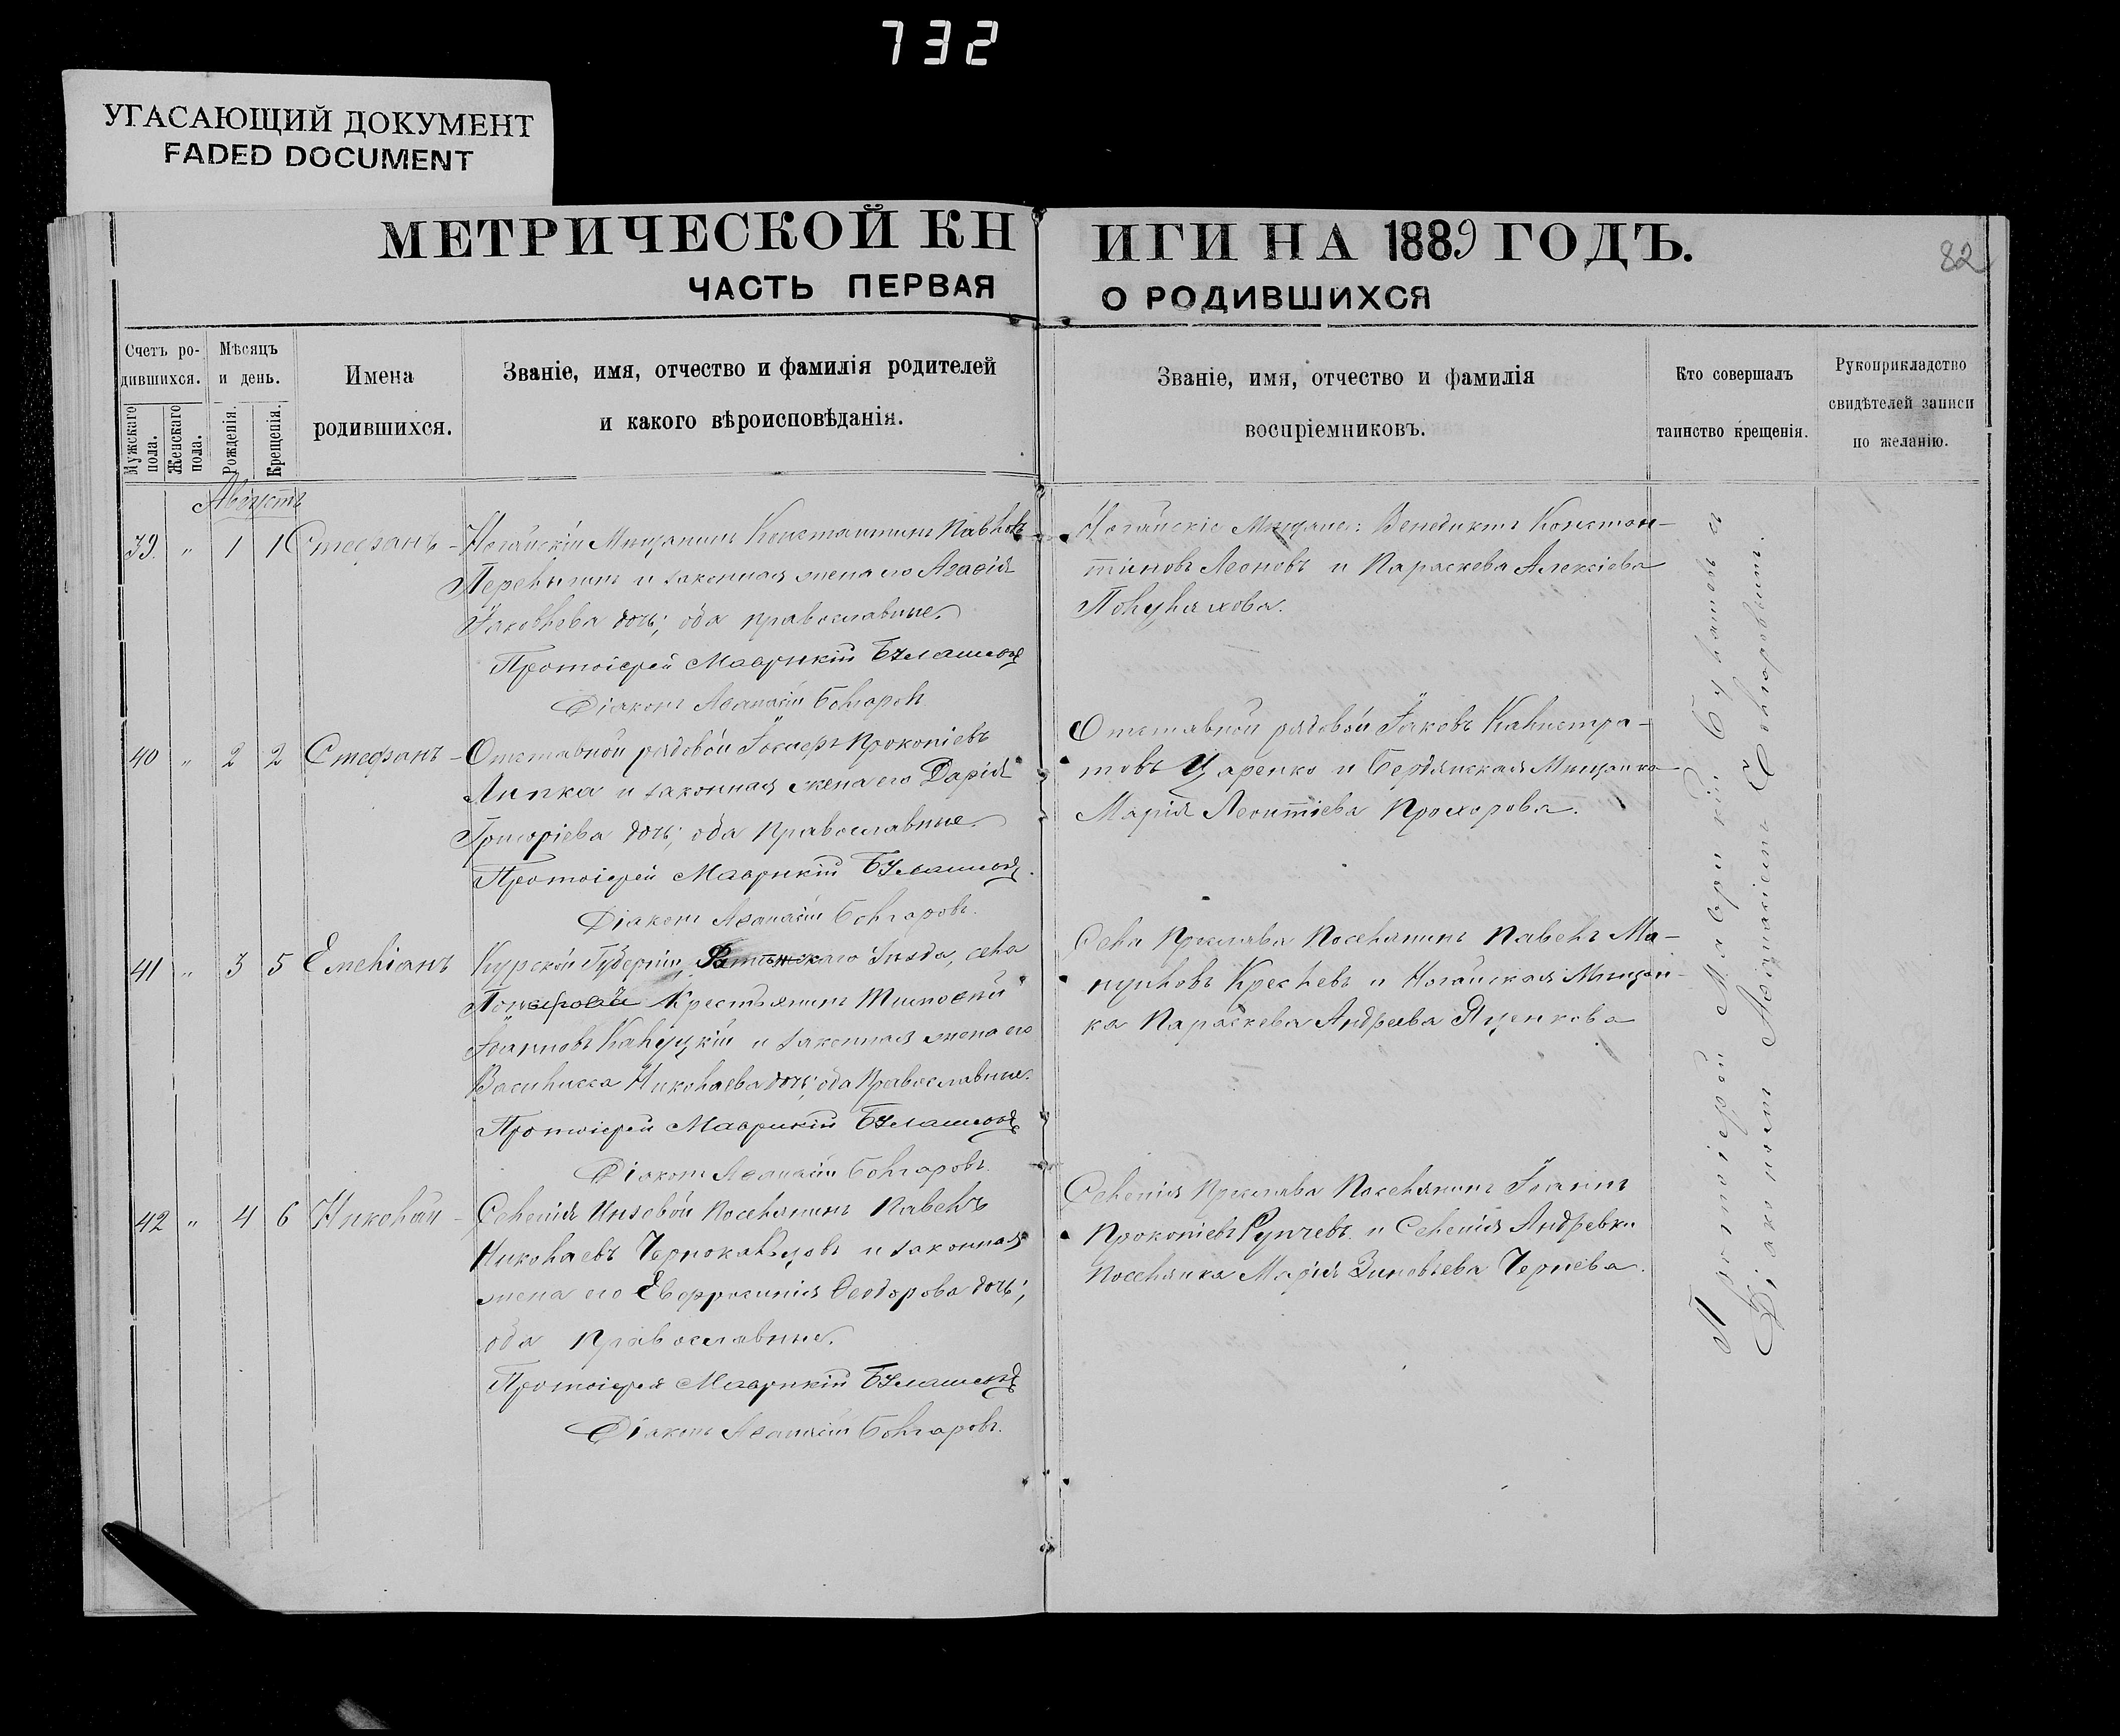 732
УГАСАЮЩИЙ ДОКУМЕНТ
FADED DOCUMENT
МЕТРИЧЕСКОЙ КНИГИ НА 1889 ГОДЪ.
82
ЧАСТЬ ПЕРВАЯ О РОДИВШИХСЯ
Счетъ родившихся.
Мужскаго пола.
Женскаго пола.
Мѣсяцъ и день.
Рожденія.
Крещенія.
Имена родившихся.
Званіе, имя, отчество и фамилія родителей
и какого вѣроисповѣданія.
Званіе, имя, отчество и фамилія
воспріемниковъ.
Кто совершалъ
таинство крещенія.
Рукоприкладство
свидѣтелей записи
по желанію.
Августъ
39. " 1 1 Стефанъ - Ногайскій Мищанинъ Константинъ Павловъ
и законная жена его Агафія
Іаковлева дочь; оба православные.
Протоіерей Маврикій Булашевъ
Діаконъ Аѳанасій Болгаровъ
Ногайскіе Мищане: Венедиктъ Констан-
тиновъ Леоновъ и Параскева Алексіева
40 " 2 2 Стефанъ - Отставной рядовой Іосифъ Прокопіевъ
Липка и законная жена его Дарія
Григоріева дочь; оба Православные.
Протоіерей Маврикій Булашевъ
Діаконъ Аѳанасій Болгаровъ.
Отставной рядовой Іаковъ Калистра-
товъ Царенко и Бердянская Мищанка
Марія Леонтіева Прохорова.
41 " 3 5 Емеліанъ Курской Губерніи, уѣзда, села
Крестьянинъ Тимоѳей
Іоанновъ Калуцкій и законная жена его
Василисса Николаева дочь; оба Православные.
Протоіерей Маврикій Булашевъ
Діаконъ Аѳанасій Болгаровъ.
Села Преслава Поселянинъ Павелъ Ма-
нуиловъ Кремлевъ и Ногайская Мищан-
ка Параскева Андреева Яценкова
42 " 4 6 Николай - Селенія Инзовой Поселянинъ Павелъ
Николаевъ и законная
жена его Евфросинія Ѳеодорова дочь;
оба Православные.
Протоіерей Маврикій Булашевъ
Діаконъ Аѳанасій Болгаровъ.
Селенія Преслава Поселянинъ Іоаннъ
Прокопіевъ Рупчевъ и Селенія Андревки
Поселянка Марія Зиновьева Чернева.
Протоіерей Маврикій Булашовъ съ
Діакономъ Аѳанасіемъ Болгаровымъ.